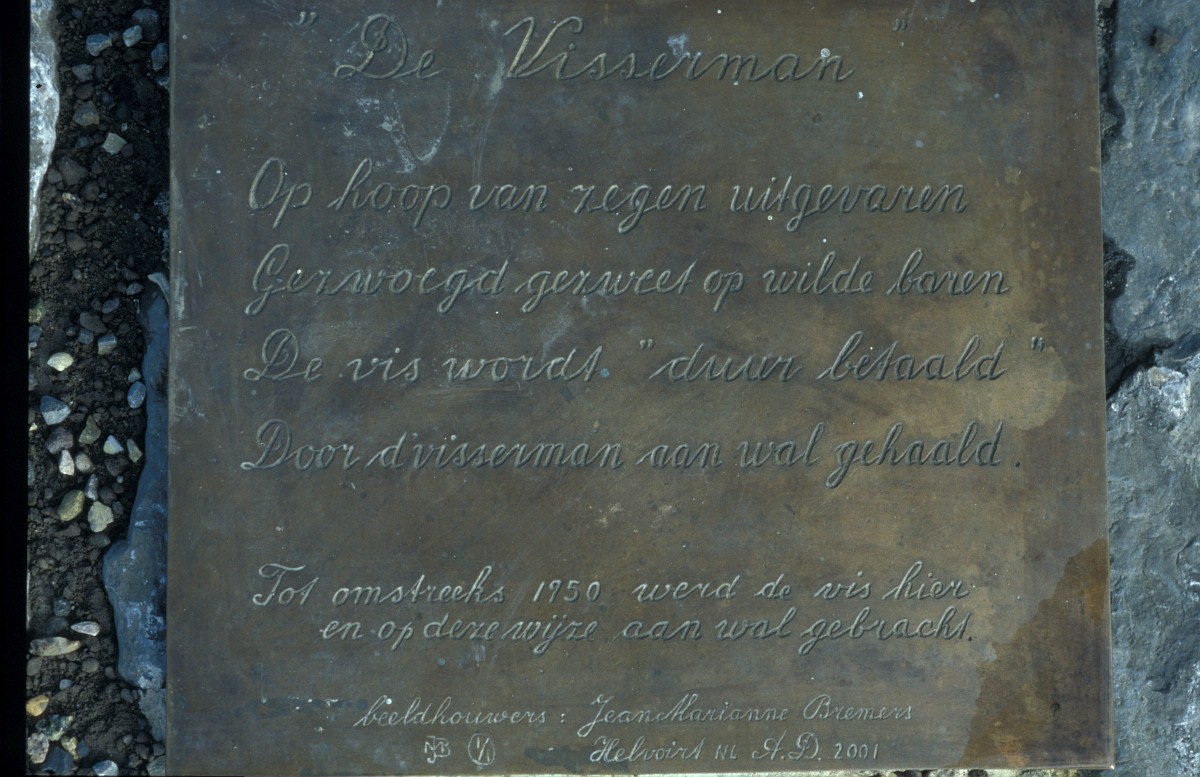 "De Visserman"
Op hoop van zegen uitgevaren
Gezwoegd gezweet op wilde baren
De vis wordt "duur betaald"
Door d'visserman aan wal gehaald.
Tot omstreeks 1950 werd de vis hier
en op deze wijze aan wal gebracht.
beeldhouwers: Jean Marianne Bremers
Helvoirt NL A.D. 2001